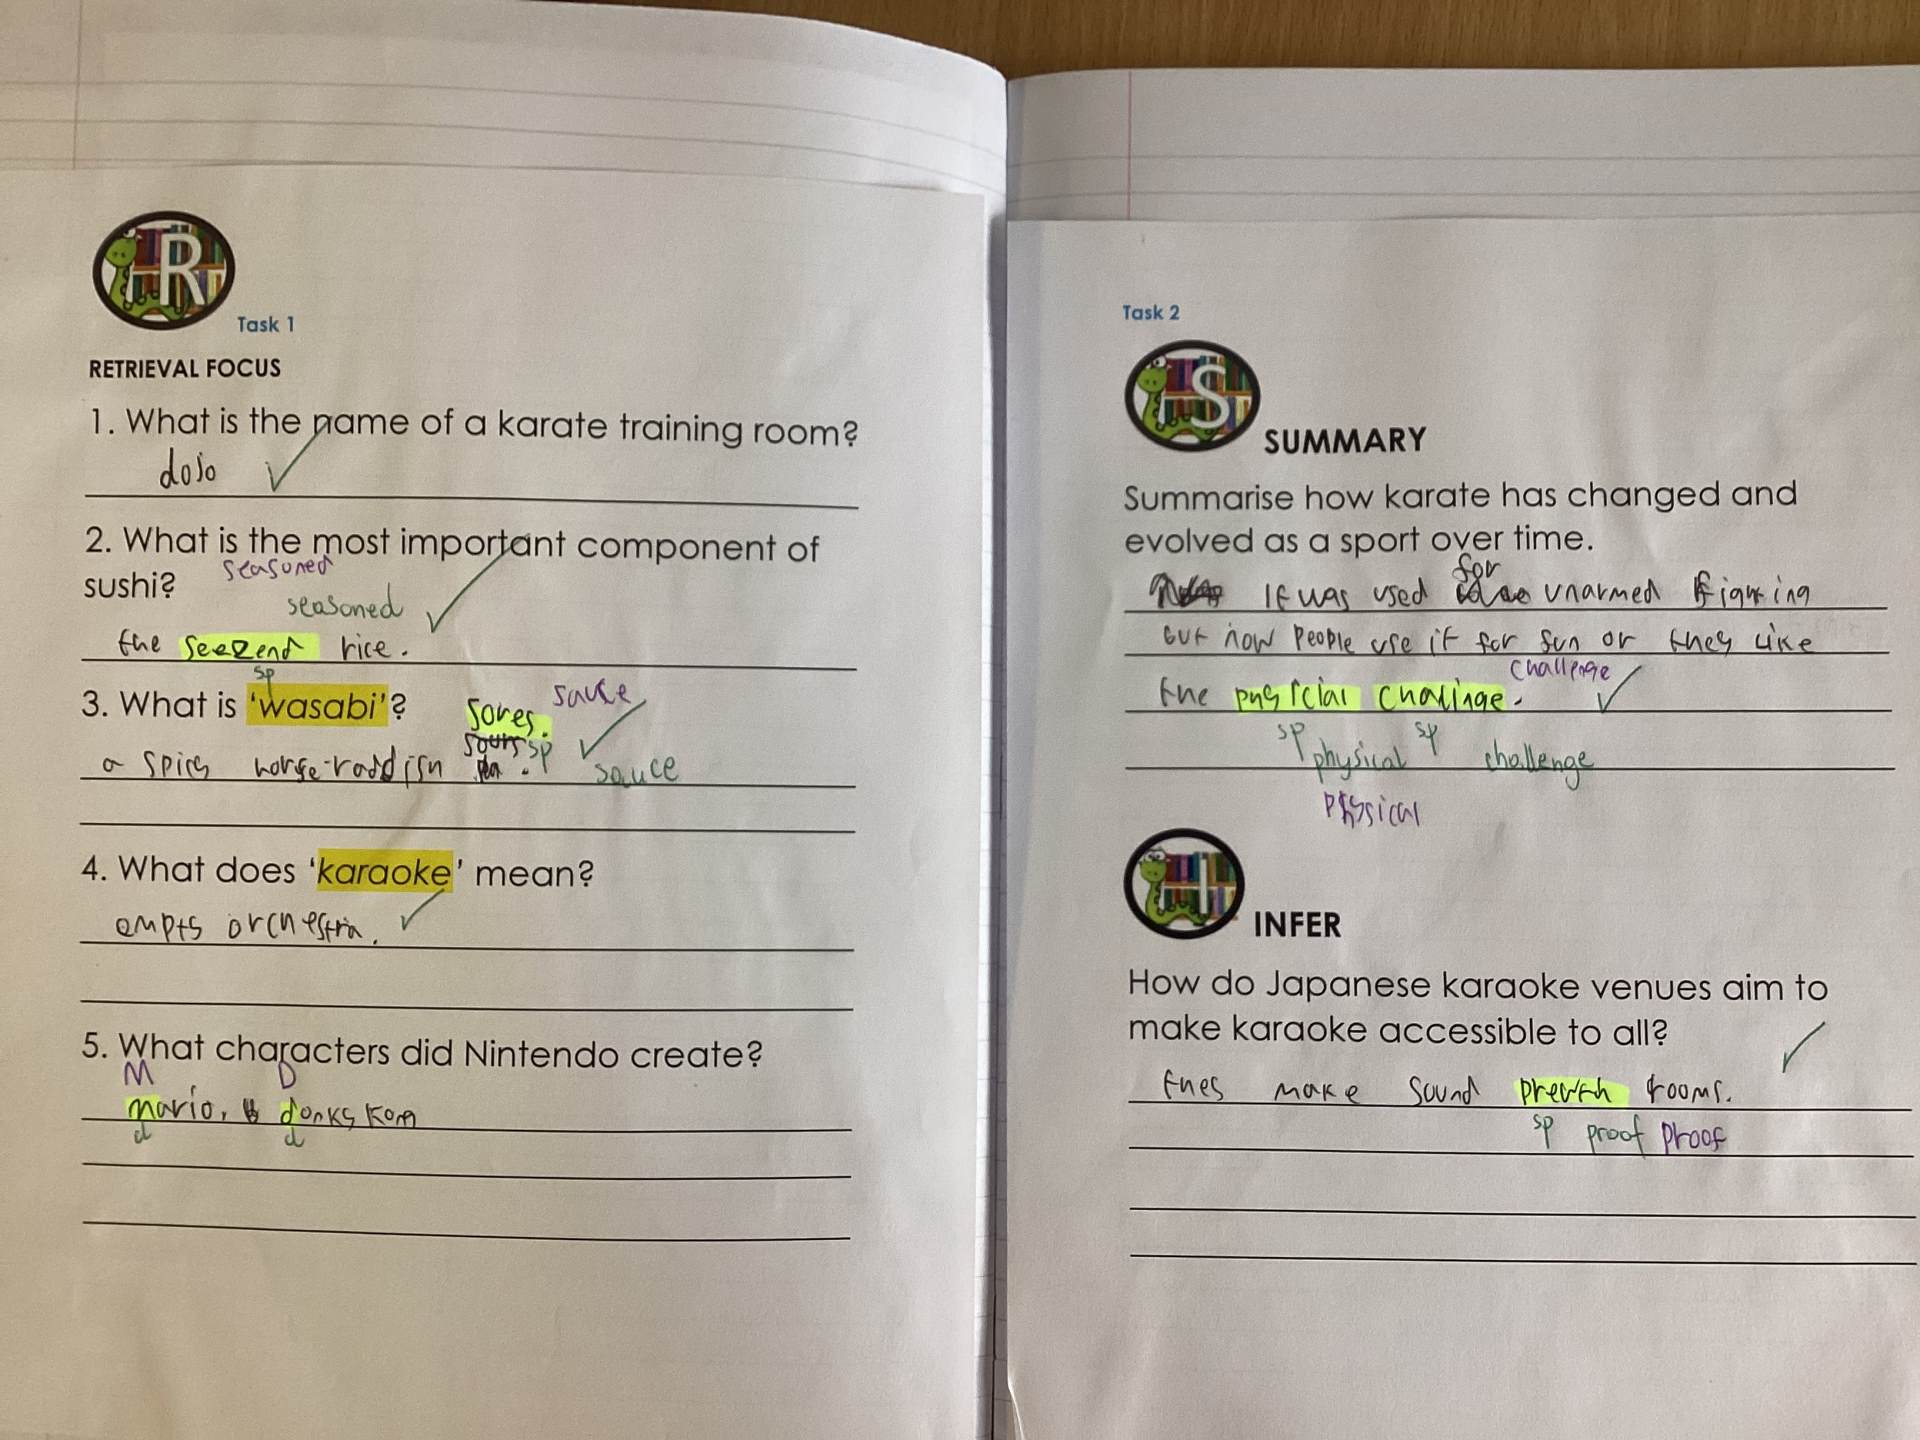 R
Task 1
RETRIEVAL FOCUS
1. What is the name of a karate training room?
dojo
2. What is the most important component of
sushi?
seasoned
seasoned
the seezend rice.
sp
3. What is 'wasabi'?
sores.
sauce
a spicy horse-raddish
sp
sauce
4. What does 'karaoke' mean?
empty orchestra.
5. What characters did Nintendo create?
M D
mario, donky Kong
d d
Task 2
S
SUMMARY
Summarise how karate has changed and
evolved as a sport over time.
for
It was used unarmed fighting
but now people use it for fun or they like
challenge
the pysicial challinge.
sp sp
physical challenge
physical
I
INFER
How do Japanese karaoke venues aim to
make karaoke accessible to all?
they make sound rooms.
sp proof proof